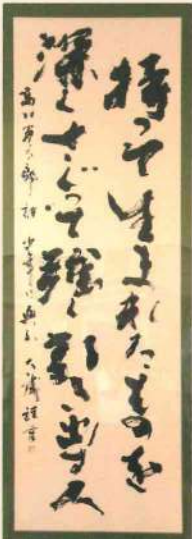 持って生れたものを
深くさぐって強く引き出す人
高村光太郎 詩 少年に與ふ